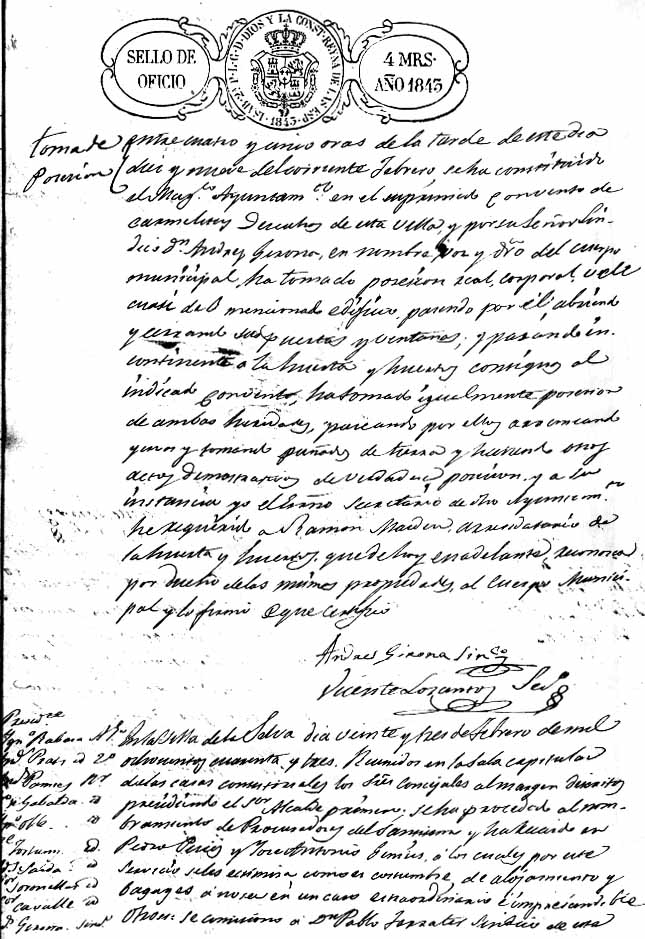 SELLO DE
OFICIO
ISAB. 2ª P. L. G. D. DIOS Y LA CONST. REYNA DE LAS ESP.
1843
4 MRS.
AÑO 1843
toma de
Posecion
entre cuatro y cinco oras de la tarde de este dia
diez y nueve del corriente Febrero se ha constituido
el Mag.co Ayuntam.to en el suprimido convento de
Carmelitas Descalzos de esta villa, y por su Señor Sín-
dico Dn. Andres Gerona, en nombre voz y dro del cuerpo
municipal, ha tomado posesion real, corporal, vel
cuasi del mencionado edificio, paseando por el abriendo
y cerrando sus puertas y ventanas; y pasando in-
continente a la huerta y huertos contiguos al
indicado convento, ha tomado igualmente posesion
de ambas heredades, paseando por ellos arrancando
yervas y tomando puñados de tierra y haciendo otros
actos demostrativos de verdadera posecion, y a su
instancia yo el Secretario de dho Ayuntam.to
he requerido a Ramon arrendatario de
la huerta y huertos, que de hoy en adelante, reconosca
por dueño de las mismas propiedades, al Cuerpo Munici-
pal y lo firmó de que certifico
Andres Girona Sin.co
Vicente Lozano Sec.o
Presentes
En la Villa de la Selva dia veinte y tres de Febrero de mil
ochocientos cuarenta y tres. Reunidos en la sala capitular
de las casas consistoriales los Sres Concejales al margen descritos
presidiendo el Sor Alcalde primero, se ha procedido al nom-
bramiento de Procuradores del y ha recaido en
Pedro y Jose Antonio á los cuales por este
servicio se les como es costumbre de alojamiento y
bagages á no ser en un caso extraordinario é imprescindible
Otrosi: se comisiono a Dn Pablo Sindico de esta
Rabasa
Prats id 2º
Pamies
Gabalda id
id
Fortuny id
Sarda id
id
Cavallé id
Girona Sind.o